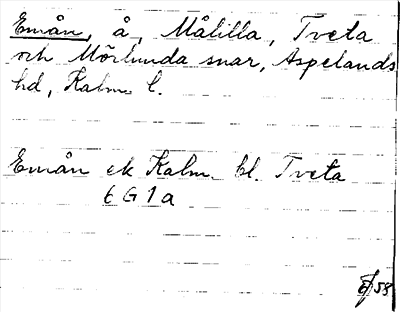 Emån, å, Målilla, Tveta
och Mörlunda snar, Aspelands
hd, Kalm. l.
Emån ek Kalm. bl. Tveta
6 G 1 a
58